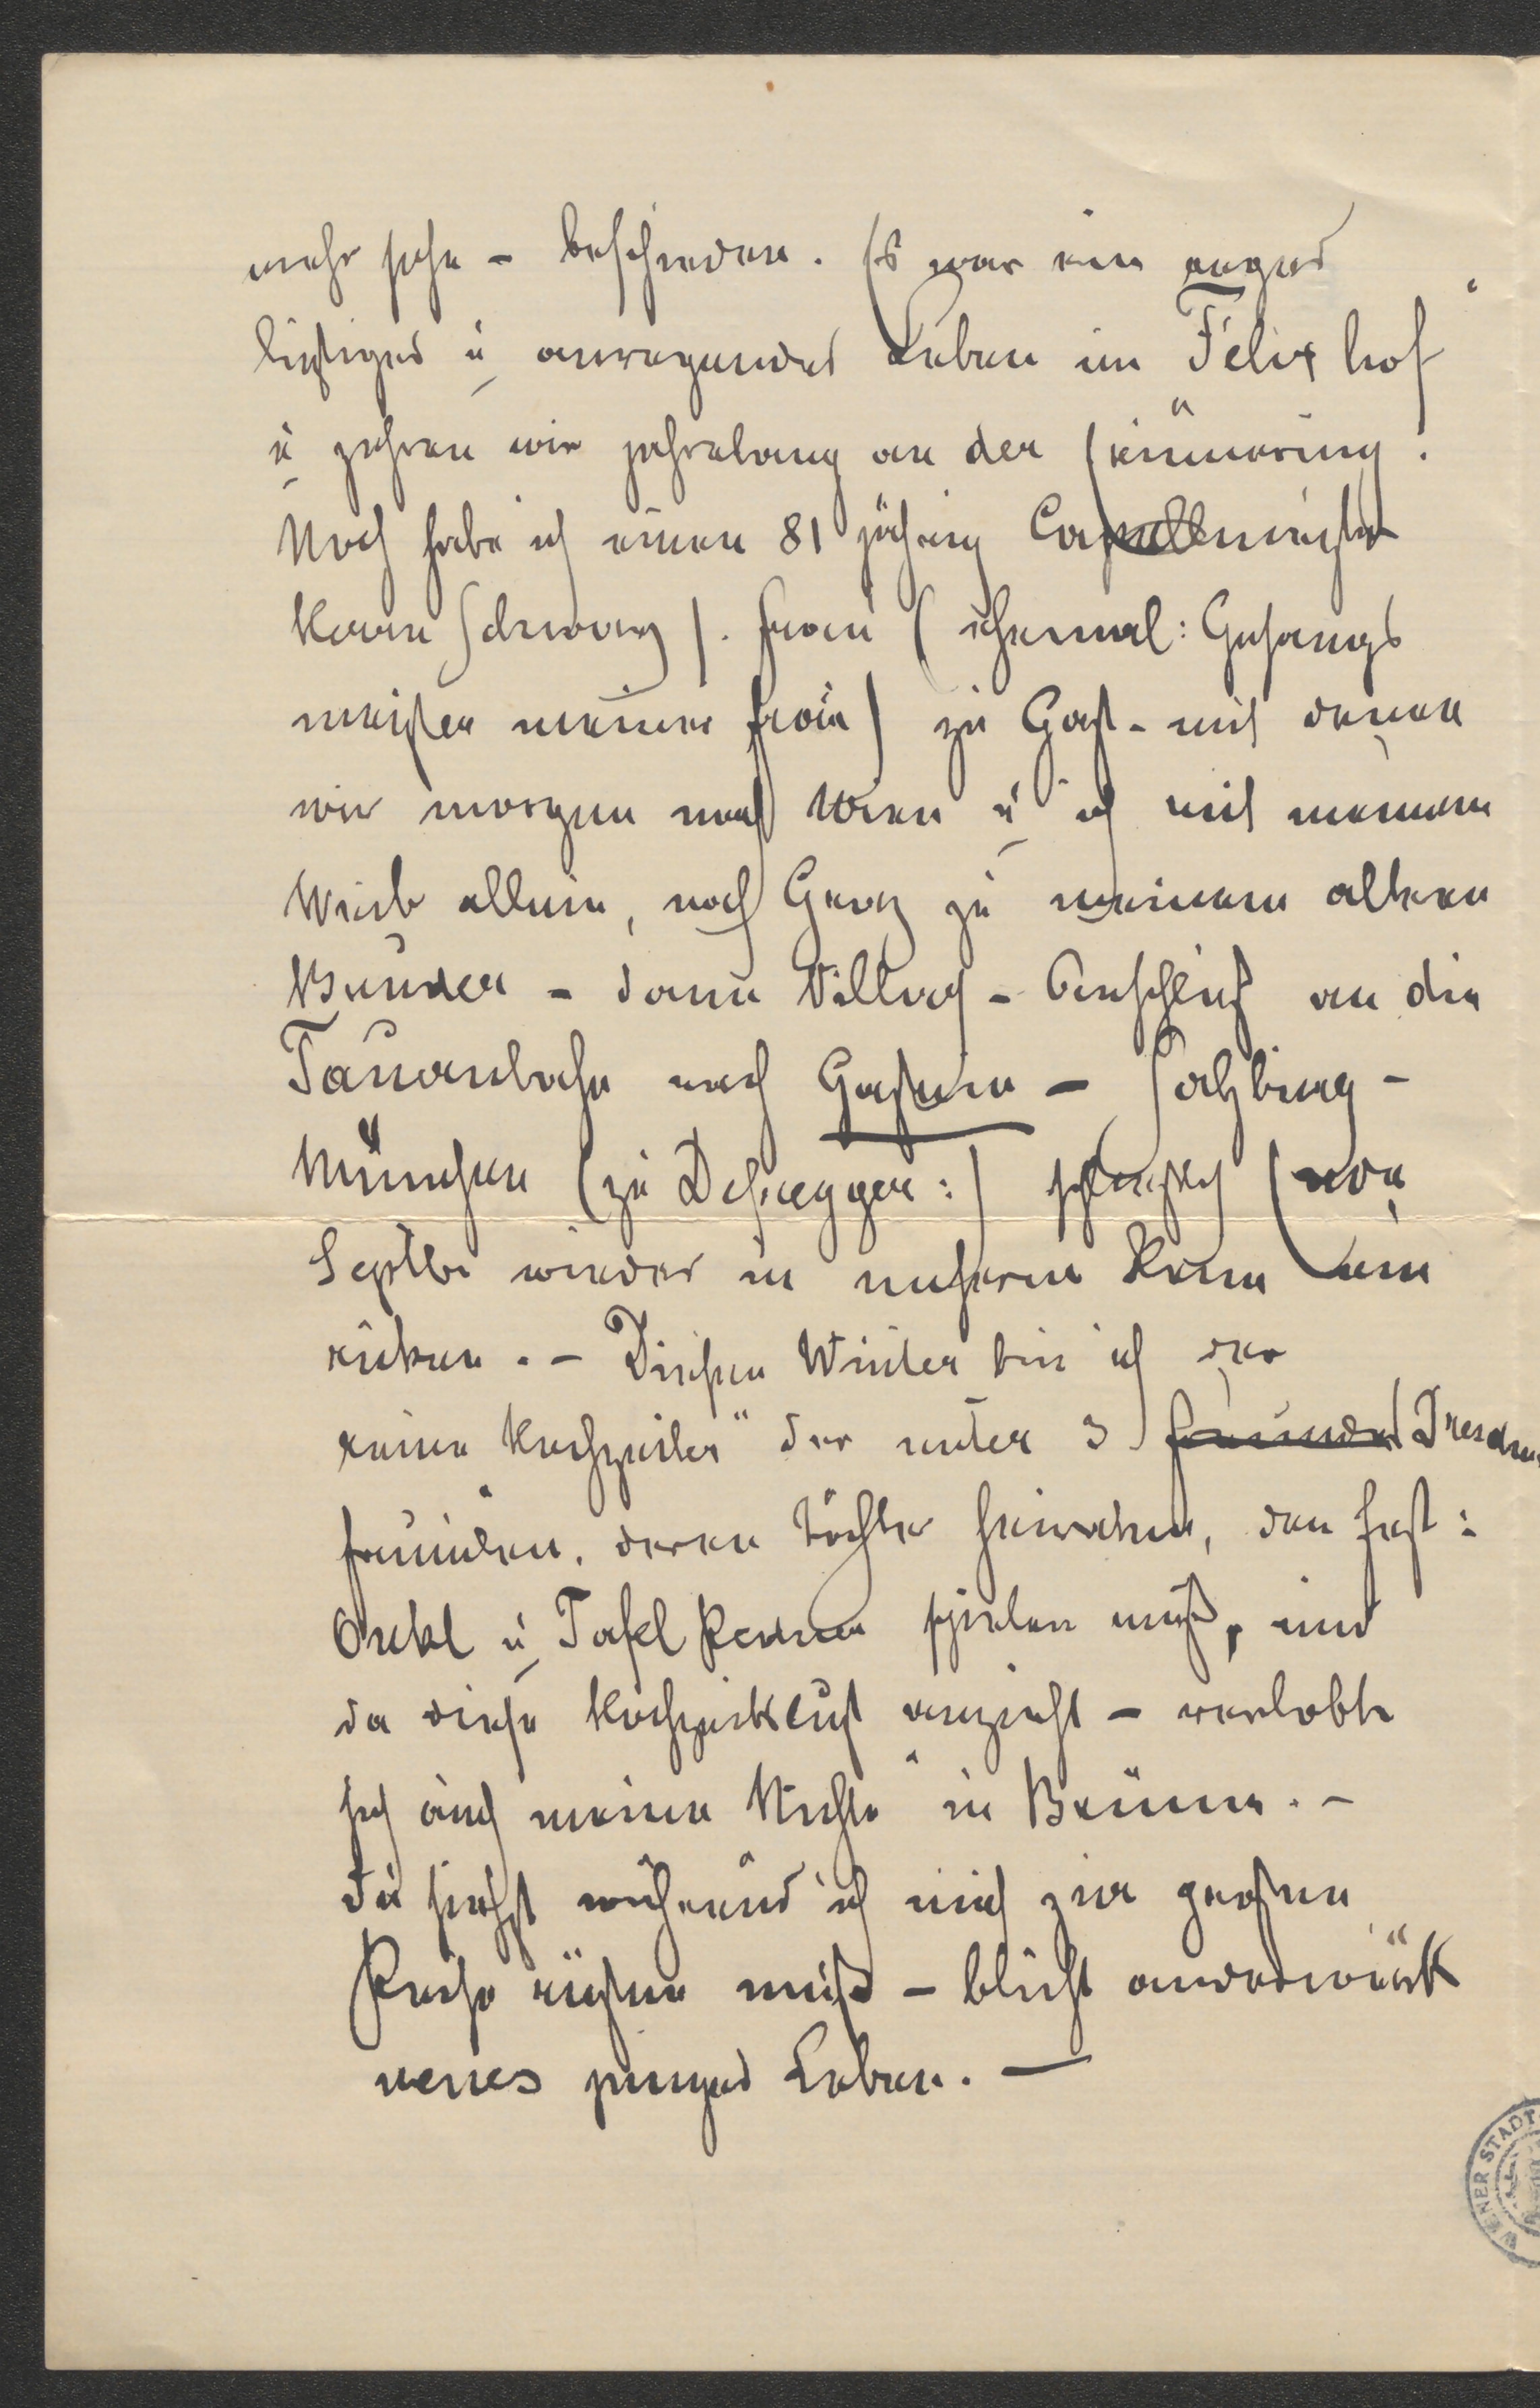 mehr sehe – beschieden. Es war ein reges
lustiges u anregendes Leben im Felixhof"
u zehren wir jahrelang an der Erinnerung.
Noch habe ich einen 81 jährig Capellmeister
Herrn Schwarz s. Frau (ehemal: Gesangs
meister meiner Frau) zu Gast – mit denen
wir morgen nach Wien u ich mit meinem
Weib allein, nach Graz zu meinem alten
Bruder – dann Villach – Anschluß an die
Tauernbahn nach Gastein – Salzburg –
München (zu Defregger:)
Septbr wieder in unserem Heim ein
rücken. – Diesen Winter bin ich der
reine Hochzeiter" der unter 3 Freunden Dresdner
freunden, deren Töchter heirathen, den Fest:
Onkel u Tafel Redner spielen muß, und
da diese Hochzeitslust anzieht – verlobte
sich auch meine Nichte in Brünn. –
Du siehst während ich mich zur großen
Reise rüsten muß – blüht anderwärts
neues junges Leben. —
WIENER STADT